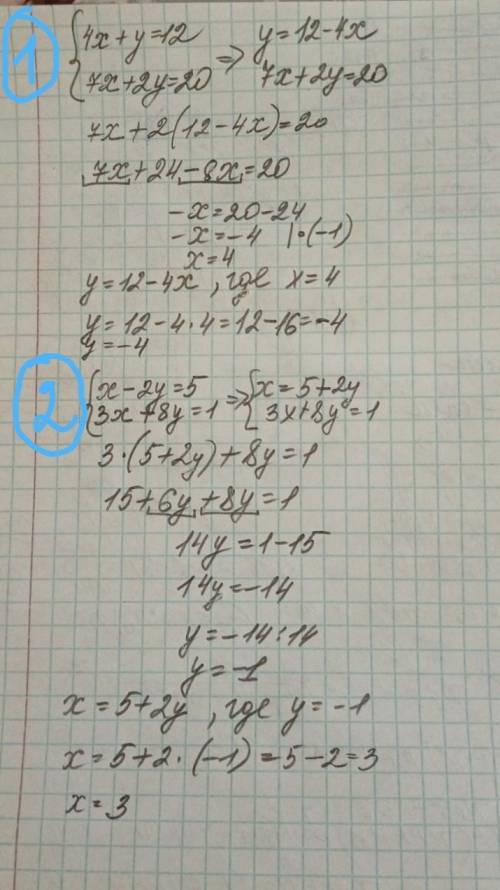 1
{4x+y=12 => y=12-4x
{7x+2y=20 7x+2y=20
7x+2(12-4x)=20
7x+24-8x=20
-x=20-24
-x=-4 |·(-1)
x=4
y=12-4x, где x=4
y=12-4·4=12-16=-4
y=-4
2
{x-2y=5 => {x=5+2y
{3x+8y=1 {3x+8y=1
3·(5+2y)+8y=1
15+6y+8y=1
14y=1-15
14y=-14
y=-14:14
y=-1
x=5+2y, где y=-1
x=5+2·(-1)=5-2=3
x=3